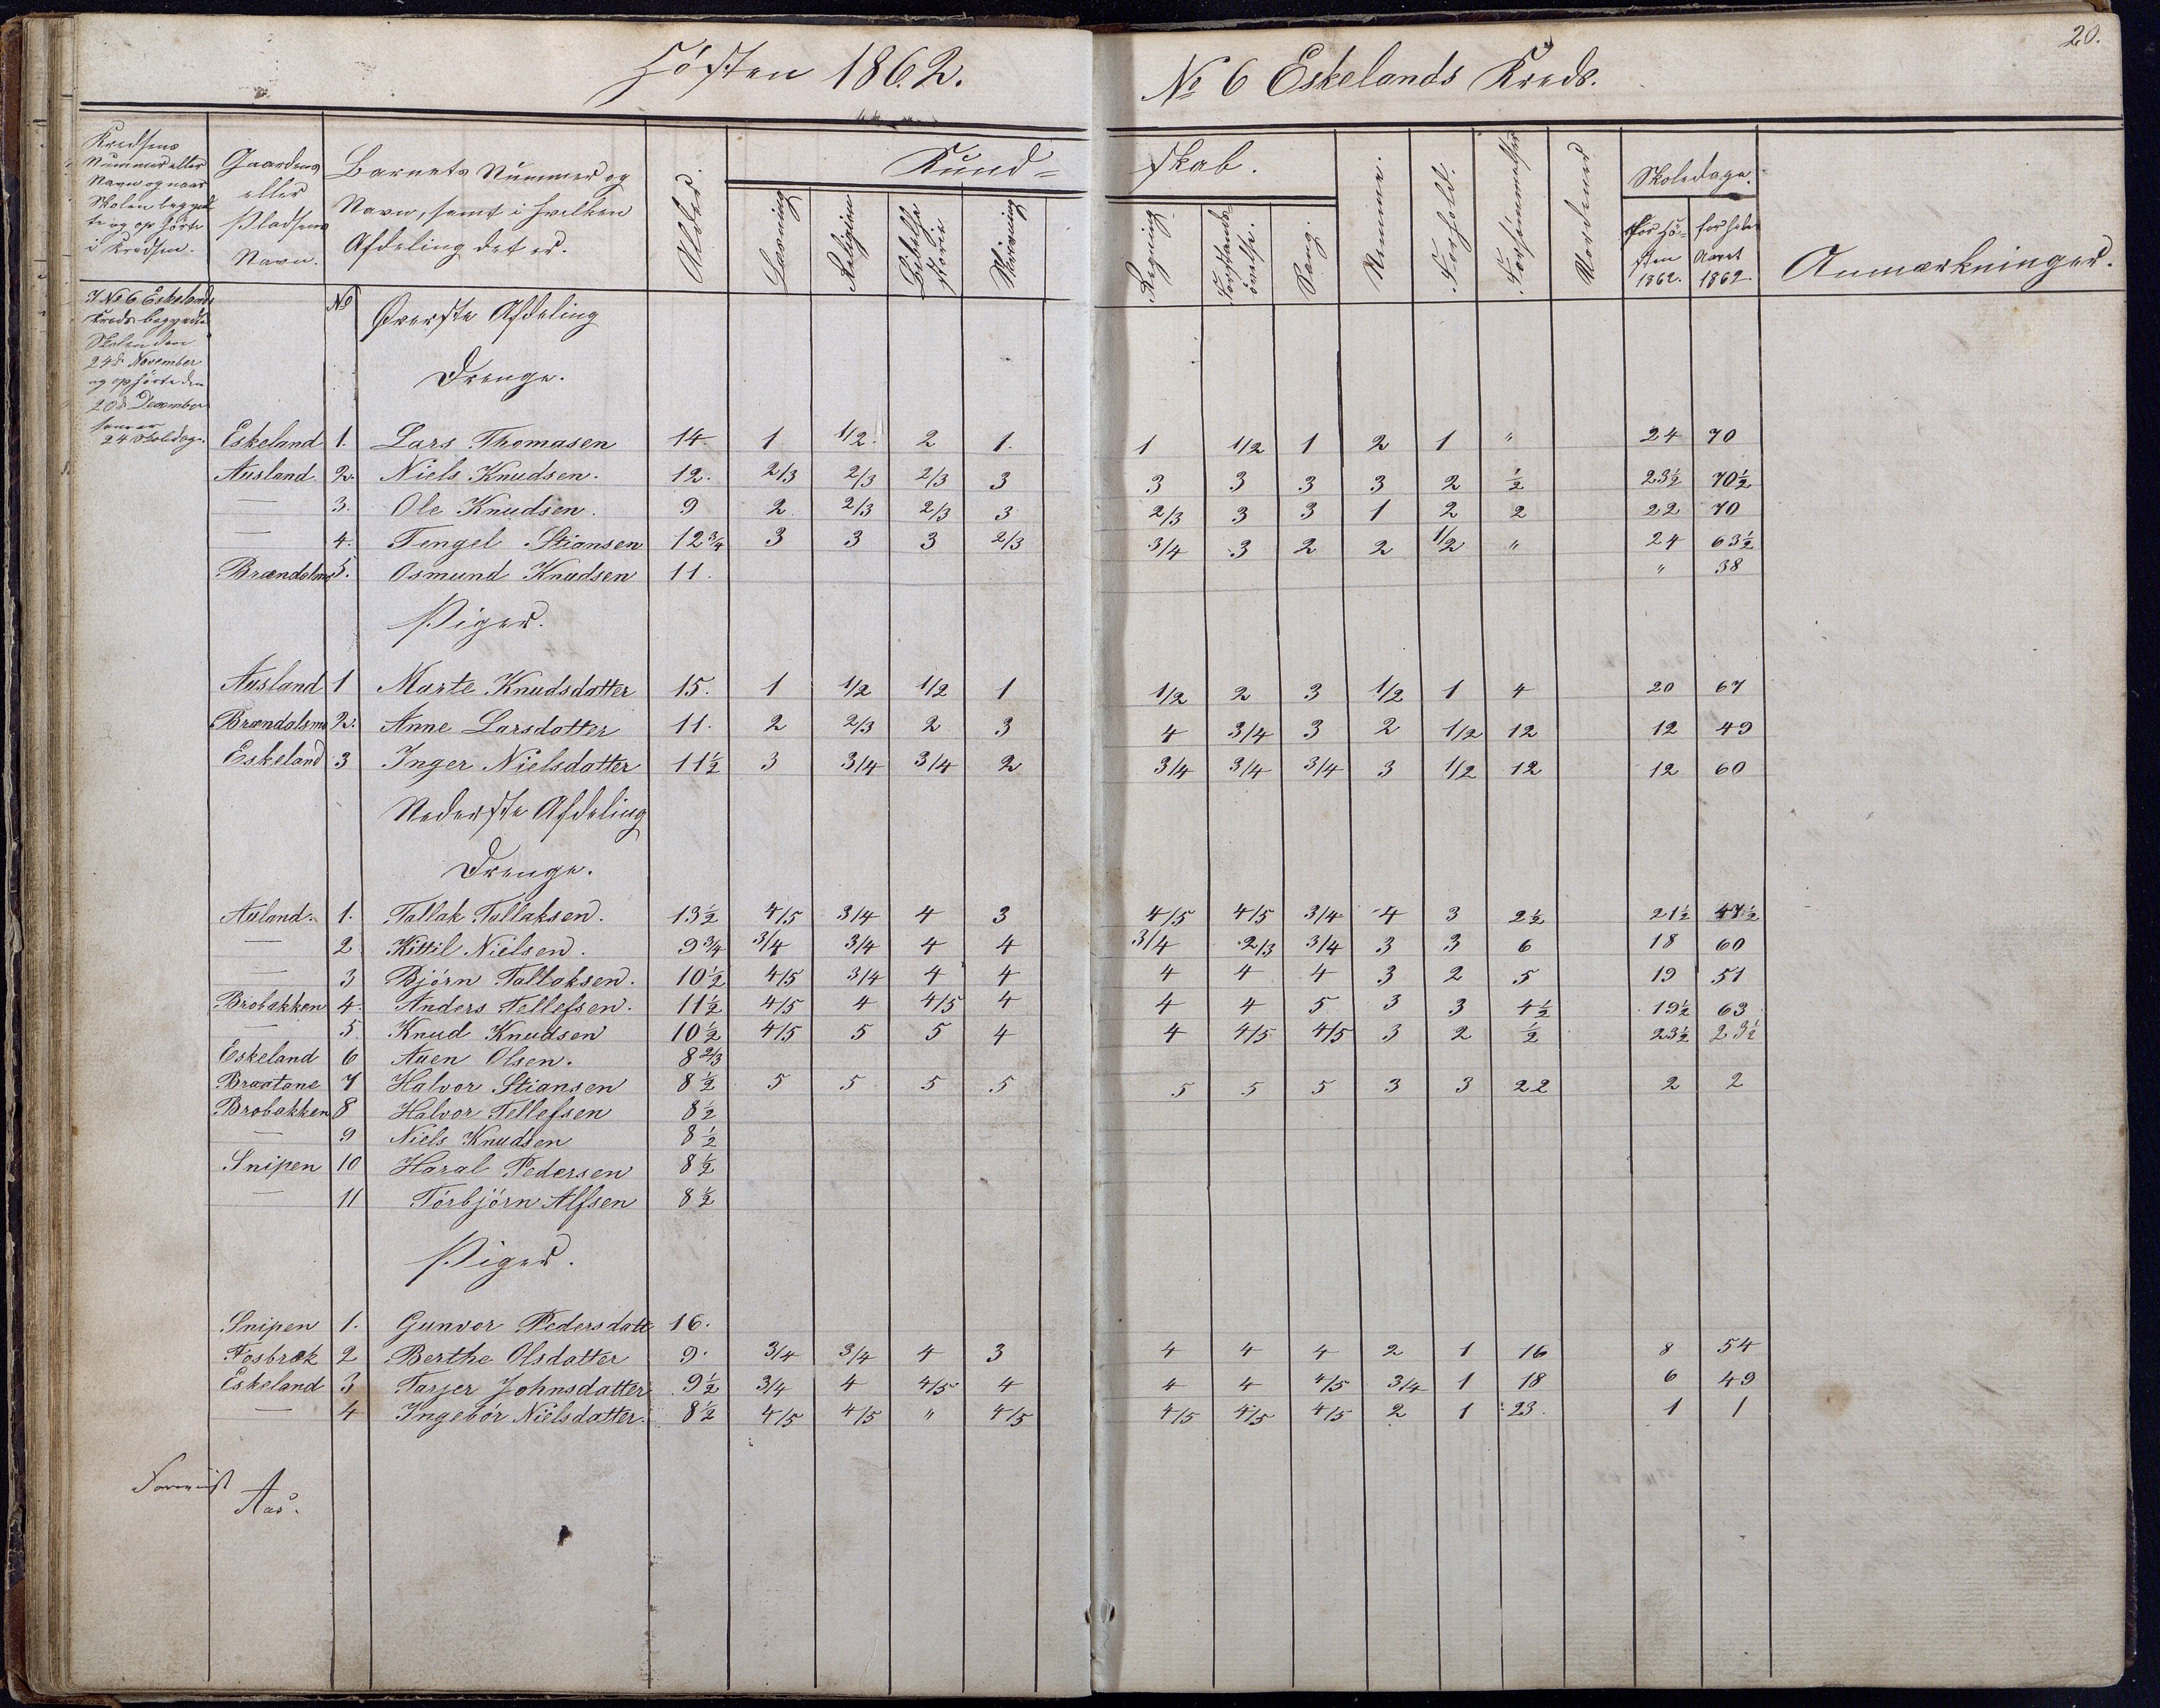 Hösten 1862.
No 6 Eskelands Kreds.
20.
Kredsens Nummer eller Navn og naar Skolen begyndte og ophörte i Kredsen.
Gaardens eller Pladsens Navn.
Barnets Nummer og Navn, samt i hvilken Afdeling det er.
Alder.
Kund-
skab.
Læsning
Religion
Bibelhistorie
Skrivning
Regning
Forstandsövelse.
Sang.
Nemme.
Forhold.
Forsömmelser
Skoledage.
For Hösten 1862.
for hele Aaret 1862
Anmærkninger.
I No 6 Eskelands
Kreds begyndte
Skolen den
24d November
og ophörte den
20d December
som er
24 Skoledage.
No Øverste Afdeling
Drenge.
Eskeland 1. Lars Thomasen 14 1 1/2 2 1. 1 1/2 1 2 1 " 24 70
Ausland 2. Niels Knudsen. 12. 2/3 2/3 2/3 3 3 3 3 3 2 ½ 23½ 70½
— 3. Ole Knudsen. 9 2 2/3 2/3 3 2/3 3 3 1 2 2 22 70
— 4. Tengel Stiansen 12¾ 3 3 3 2/3 3/4 3 2 2 1/2 " 24 63½
Brændalsmo 5. Osmund Knudsen 11. " 38
Piger.
Ausland 1 Marte Knudsdatter 15. 1 1/2 1/2 1 1/2 2 3 1/2 1 4 20 67
Brændalsmo 2. Anne Larsdatter 11. 2 2/3 2 3 4 3/4 3 2 1/2 12 12 49
Eskeland 3 Inger Nielsdatter 11½ 3 3/4 3/4 2 3/4 3/4 3/4 3 1/2 12 12 60
Nederste Afdeling
Drenge.
Auland. 1. Tallak Tallaksen. 13½ 4/5 3/4 4 3 4/5 4/5 3/4 4 3 2½ 21½ 47½
— 2 Kittil Nielsen. 9¾ 3/4 3/4 4 4 3/4 2/3 3/4 3 3 6 18 60
— 3 Bjórn Tallaksen. 10½ 4/5 3/4 4 4 4 4 4 3 2 5 19 51
Brobakken 4. Anders Tellefsen. 11½ 4/5 4 4/5 4 4 4 5 3 3 4½ 19½ 63
— 5. Knud Knudsen 10½ 4/5 5 5 4 4 4/5 4/5 3 2 ½ 23½ 23½
Eskeland 6 Auen Olsen. 8 2/3
Braatane 7 Halvor Stiansen 8½ 5 5 5 5 5 5 5 3 3 22 2 2
Brobakken 8 Halvor Tellefsen 8½
— 9 Niels Knudsen 8½
Snipen 10 Haral Pedersen 8½
— 11 Tórbjórn Alfsen 8½
Piger.
Snipen 1. Gunvor Pedersdatt 16.
Fosbræk 2 Berthe Olsdatter 9. 3/4 3/4 4 3 4 4 4 2 1 16 8 54
Eskeland 3 Tarjer Johnsdatter 9½ 3/4 4 4/5 4 4 4 4/5 3/4 1 18 6 49
— 4 Ingebór Nielsdatter. 8½ 4/5 4/5 " 4/5 4/5 4/5 4/5 2 1 23. 1 1
Aas.